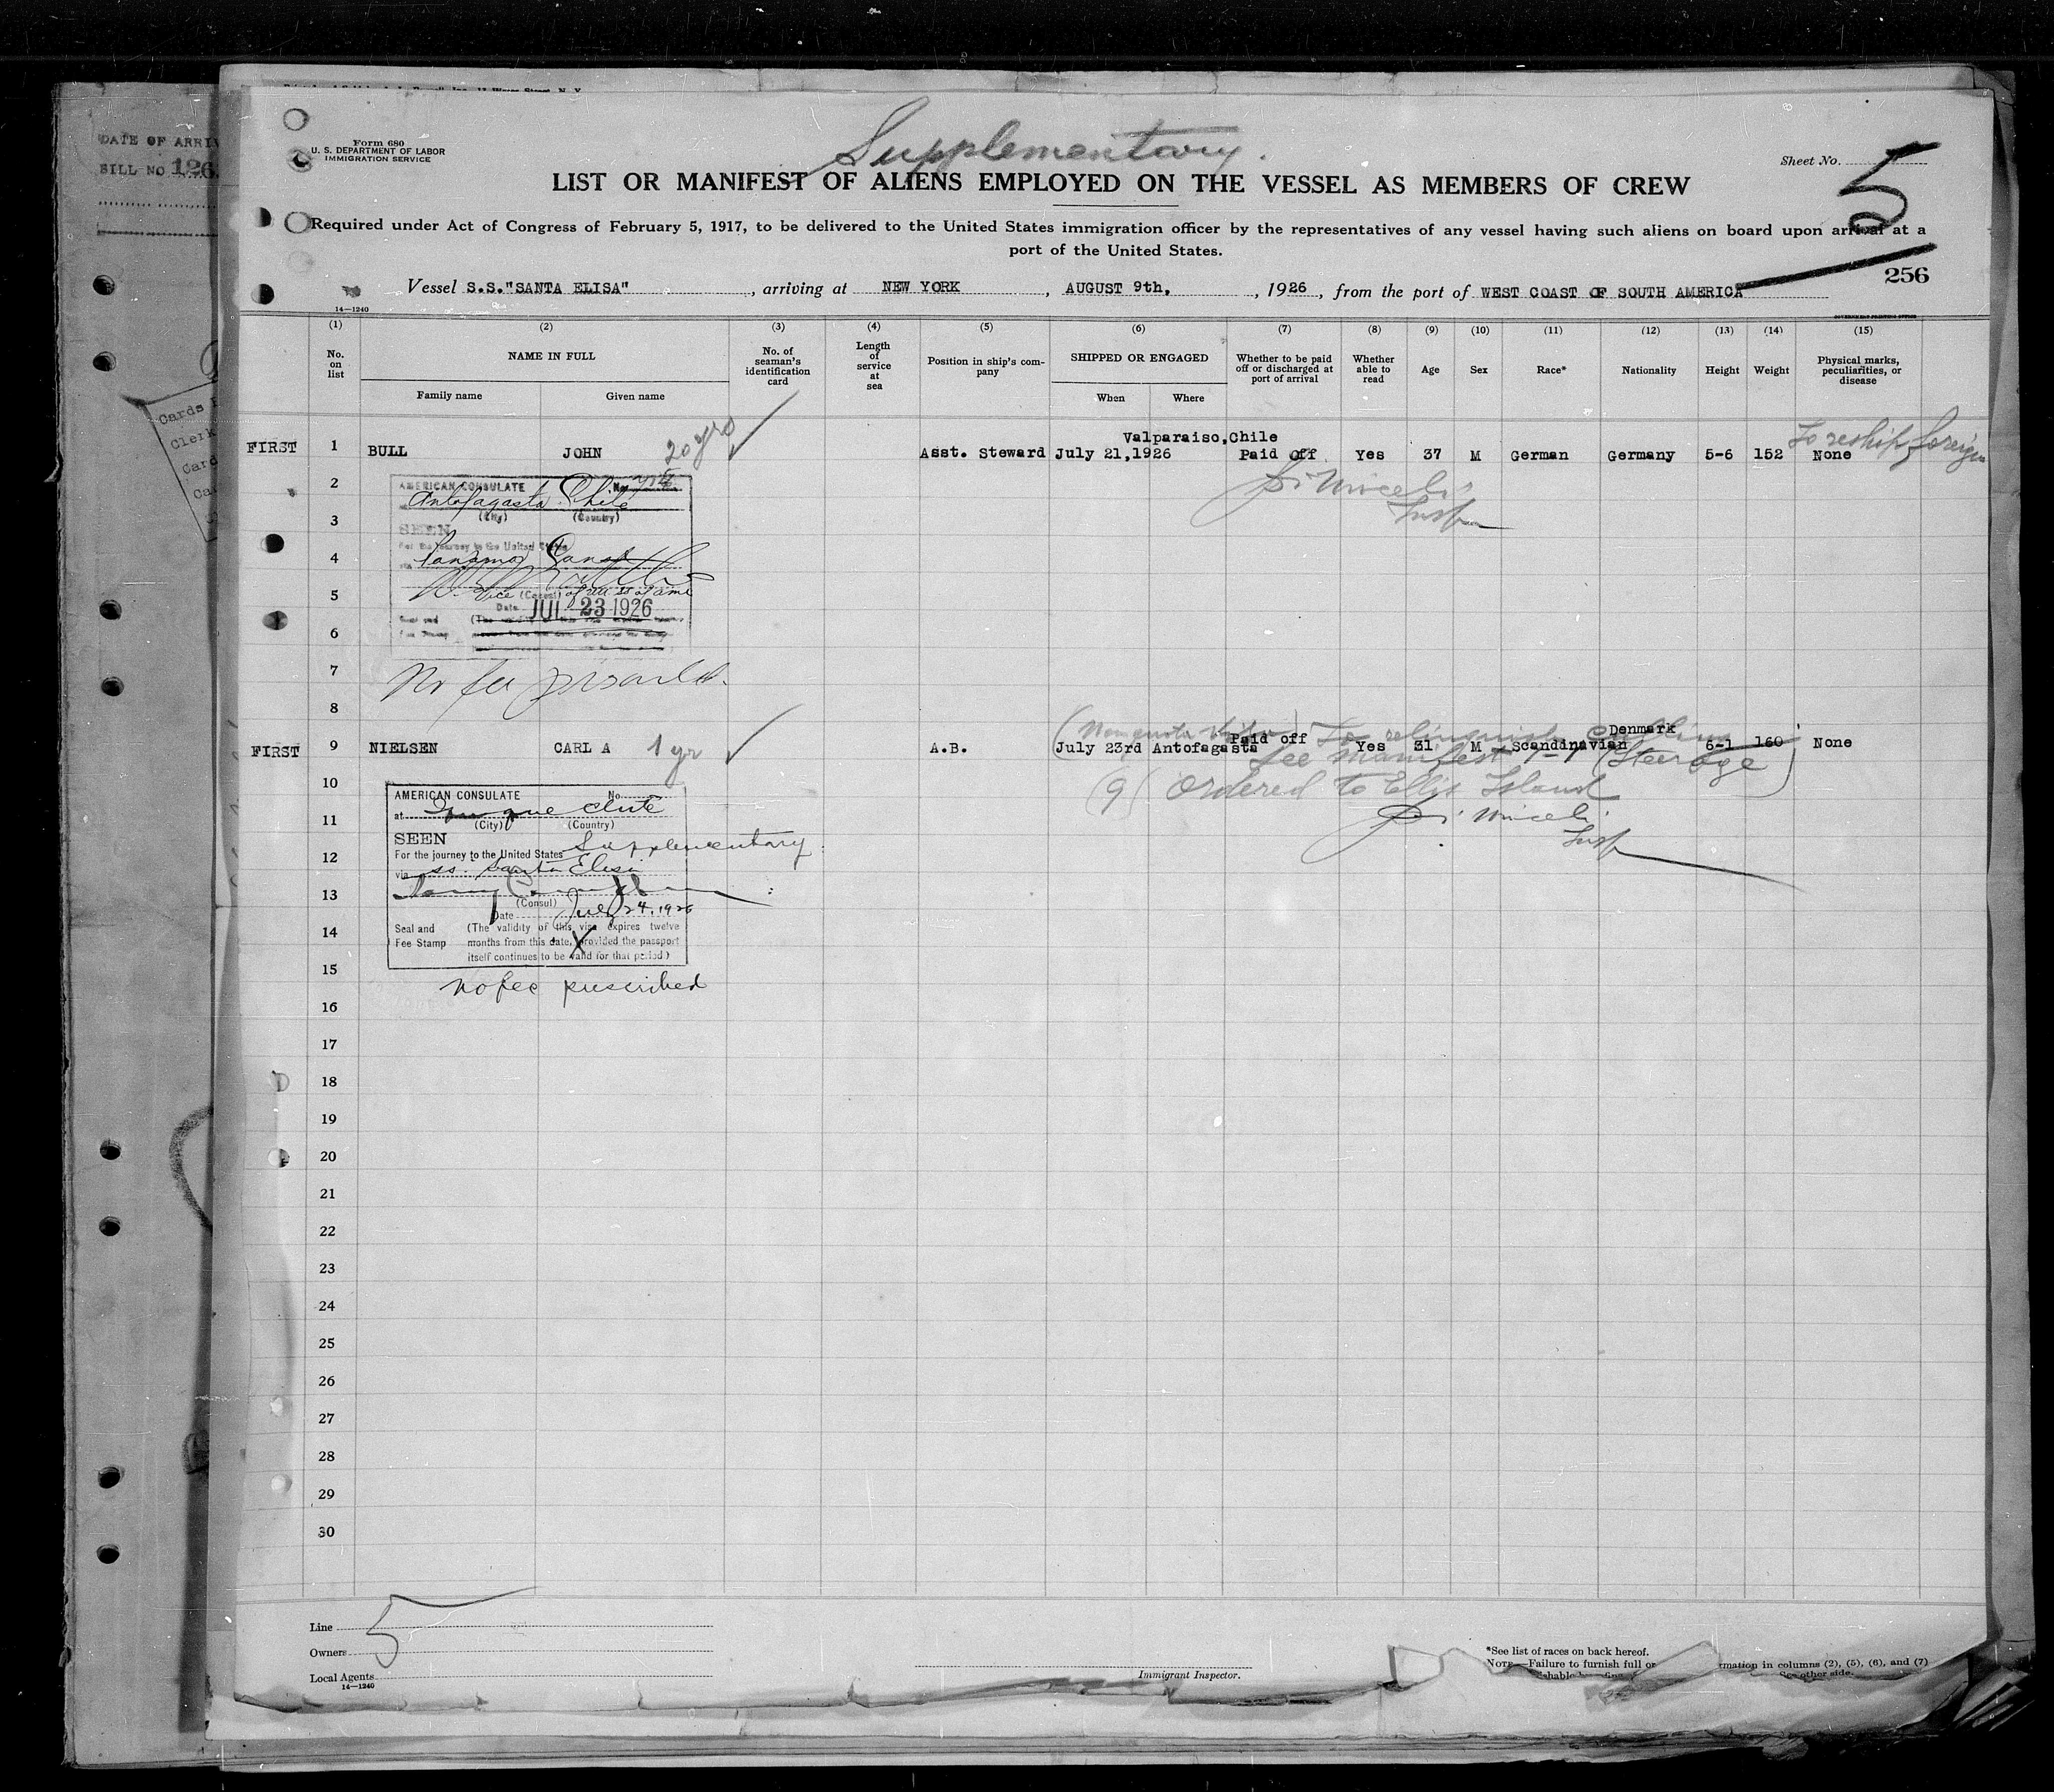 DATE OF ARRIV
BILL NO 126
Cards
Clerk
Card
Form 680
U. S. DEPARTMENT OF LABOR
IMMIGRATION SERVICE
Supplementary.
Sheet No. 5
LIST OR MANIFEST OF ALIENS EMPLOYED ON THE VESSEL AS MEMBERS OF CREW
Required under Act of Congress of February 5, 1917, to be delivered to the United States immigration officer by the representatives of any vessel having such aliens on board upon arrival at a
port of the United States.
256
Vessel S.S."SANTA ELISA", arriving at NEW YORK, AUGUST 9th, 1926, from the port of WEST COAST OF SOUTH AMERICA
14—1240
GOVERNMENT PRINTING OFFICE
(1) (2) (3) (4) (5) (6) (7) (8) (9) (10) (11) (12) (13) (14) (15)
No. on list
NAME IN FULL
Family name
Given name
No. of seaman's identification card
Length of service at sea
Position in ship's company
SHIPPED OR ENGAGED
When
Where
Whether to be paid off or discharged at port of arrival
Whether able to read
Age
Sex
Race*
Nationality
Height
Weight
Physical marks, peculiarities, or disease
To reship foreign
Valparaiso,Chile
FIRST 1 BULL JOHN 20 yrs Asst. Steward July 21,1926 Paid Off Yes 37 M German Germany 5-6 152 None
Insp
2
3
4
5
6
7
8
AMERICAN CONSULATE No.
Antofagasta Chile
(City) (Country)
SEEN
For the journey to the United States
Panama Canal
Vice (Consul) of the U S of Ame
Date JUL 23 1926
No fee prescribed.
(Nonquota visitor) To relinquish calling
Denmark
FIRST 9 NIELSEN CARL A 1 yr A.B. July 23rd Antofagasta Paid off Yes 31 M Scandinavian 6-1 160 None
See Manifest 1-1 (Steerage)
(9) Ordered to Ellis Island
Insp
10
11
12
13
14
15
AMERICAN CONSULATE No.
at Iquique Chile
(City) (Country)
SEEN
For the journey to the United States Supplementary
via ss. Santa Elisa
(Consul)
Date July 24, 1926
Seal and Fee Stamp
(The validity of this visa expires twelve
months from this date, provided the passport
itself continues to be valid for that period)
No fee prescribed
16
17
18
19
20
21
22
23
24
25
26
27
28
29
30
5
Line
Owners
Local Agents
14—1240
Immigrant Inspector.
*See list of races on back hereof.
NOTE.—Failure to furnish full or
rmation in columns (2), (5), (6), and (7)
See other side.